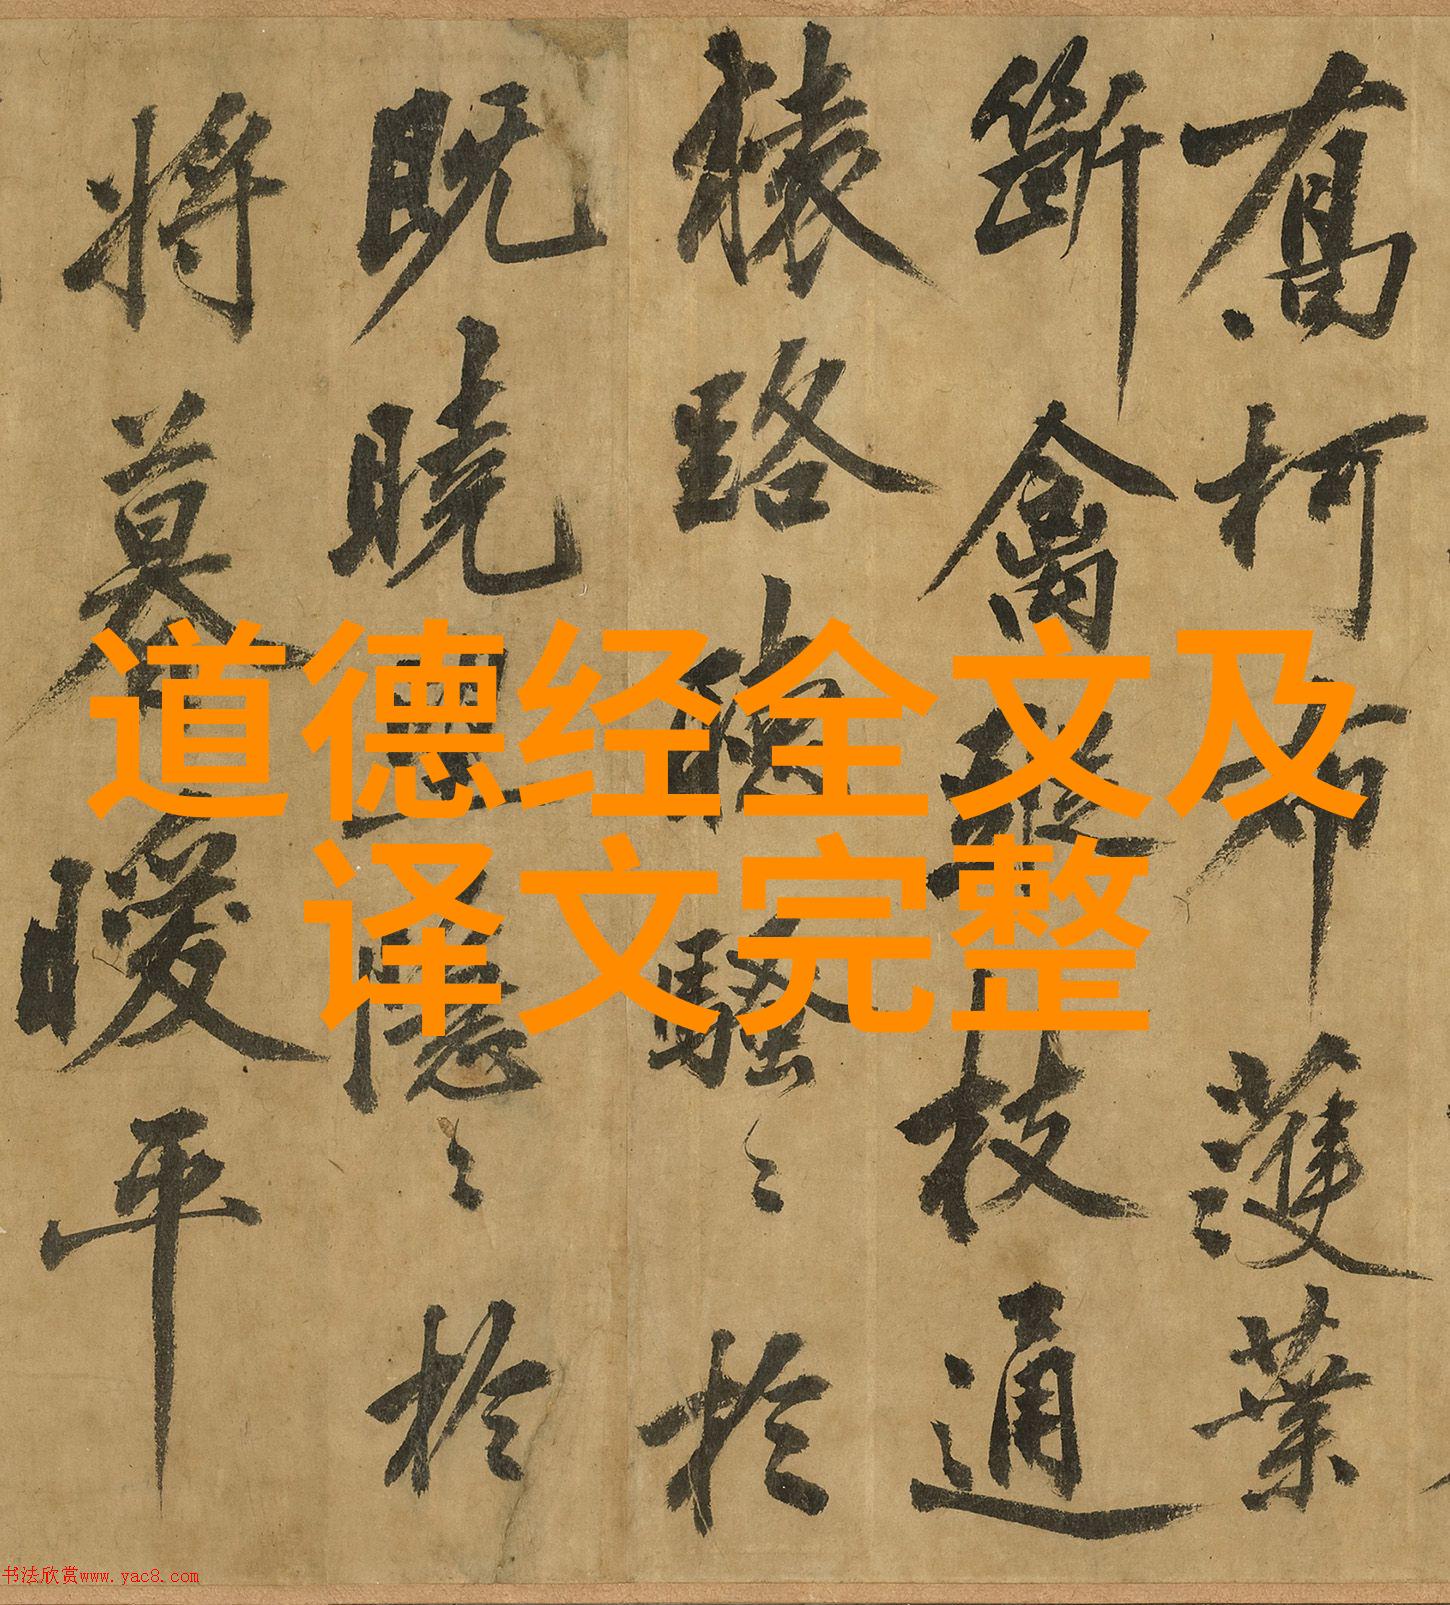 喬柯布濩葉
斷禽蹤枝通
猿路聽騷〻於
既曉望隱〻於
將暮曖平
道德经全文及
译文完整
书法欣赏www.yac8.com